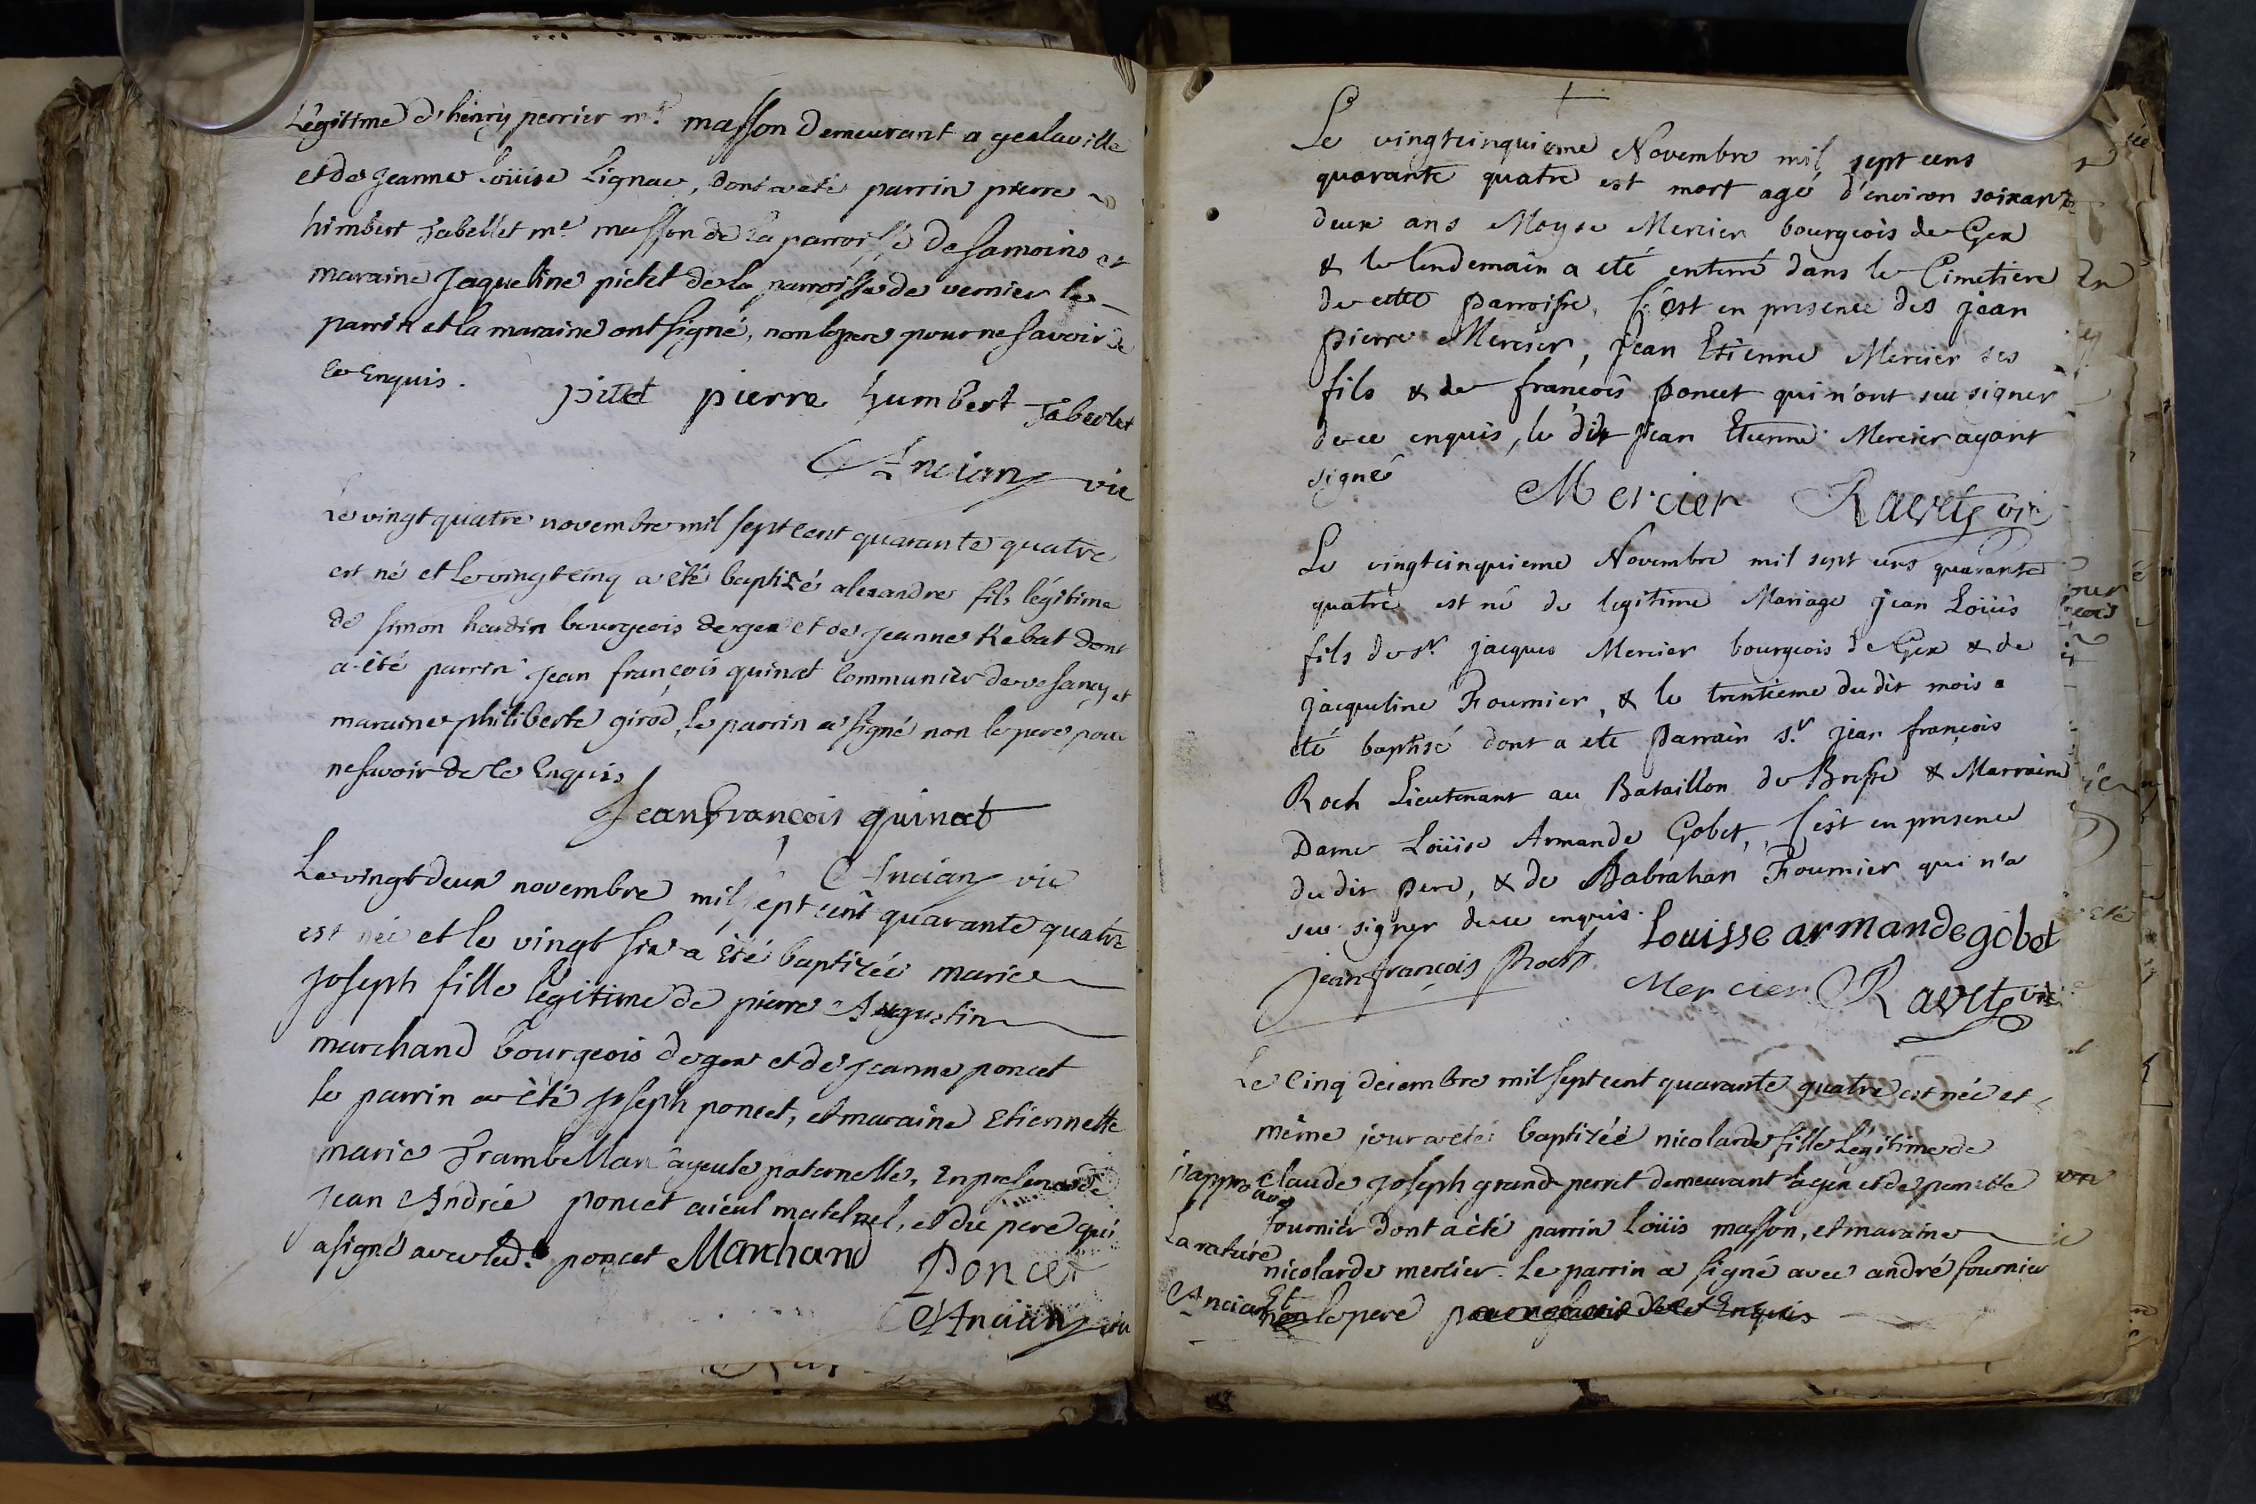 Légitime d'henry perrier me. masson demeurant a gex la ville
et de jeanne Loüise Lignac, dont a eté parrin pierre
himbert Jabellet me. masson de la parroisse de samoins et
maraine Jaqueline pictet de la parroisse de vernier le
parrin et la maraine ont signé, non le pere pour ne savoir de
ce Enquis.
pitet pierre humbert Jabeolet
Ancian vic
Le vingt quatre novembre mil sept cent quarante quatre
est né et le vingt cinq a eté baptizé alexandre fils légitime
de simon hardin bourgeois de gex et de jeanne Rebat dont
a été parrin jean françois quinat Communier de vesancy et
maraine philiberte girod, le parrin a signé non le pere pour
ne savoir de ce Enquis
Jean françois quinat
Ancian vic
Le vingt deux novembre mil sept cent quarante quatre
est née et le vingt six a été baptizée marie
joseph fille légitime de pierre Augustin
marchand bourgeois de gex et de jeanne poncet
le parrin a èté joseph poncet, et maraine Etiennette
marie Frambellan ayeule paternelle, En presence de
jean André poncet aïeul maternel, et du pere qui
a signé avec led. poncet Marchand
Poncet
Ancian vic
Le vingtcinquieme Novembre mil sept cens
quarante quatre est mort agé d'environ soixante
deux ans Moyse Mercier bourgeois de Gex
& le lendemain a eté enterré dans le Cimetiere
de cette parroisse, c'est en presence des jean
pierre Mercier, jean Etienne Mercier ses
fils & de françois poncet qui n'ont seu signer
de ce enquis, le dit jean Etienne Mercier ayant
signé
Mercier Ravety vic
Le vingtcinquieme Novembre mil sept cens quarante
quatre est né de legitime Mariage jean Loüis
fils de sr. jacques Mercier bourgeois de Gex & de
jacqueline Fournier, & le trentieme du dit mois a
eté baptisé dont a eté parrain sr. jean françois
Roch Lieutenant au Bataillon de Bresse & Marraine
Dame Loüise Armande Gobet, c'est en presence
du dit pere, & de Babrahan Fournier qui n'a
seu signer de ce enquis.
Louisse armande gobet
jean françois Roch
Mercier Ravety vic
Le Cinq decembre mil sept cent quarante quatre est née et
même jour a eté baptizée nicolarde fille Légitime de
Claude joseph grand perret demeurant a gex et de pernette
fournier dont a èté parrin Loüis masson, et maraine
nicolarde mercier. Le parrin a signé avec andré fournier
Et non le pere pour ne savoir de ce Enquis
j'approuve
La rature
Ancian